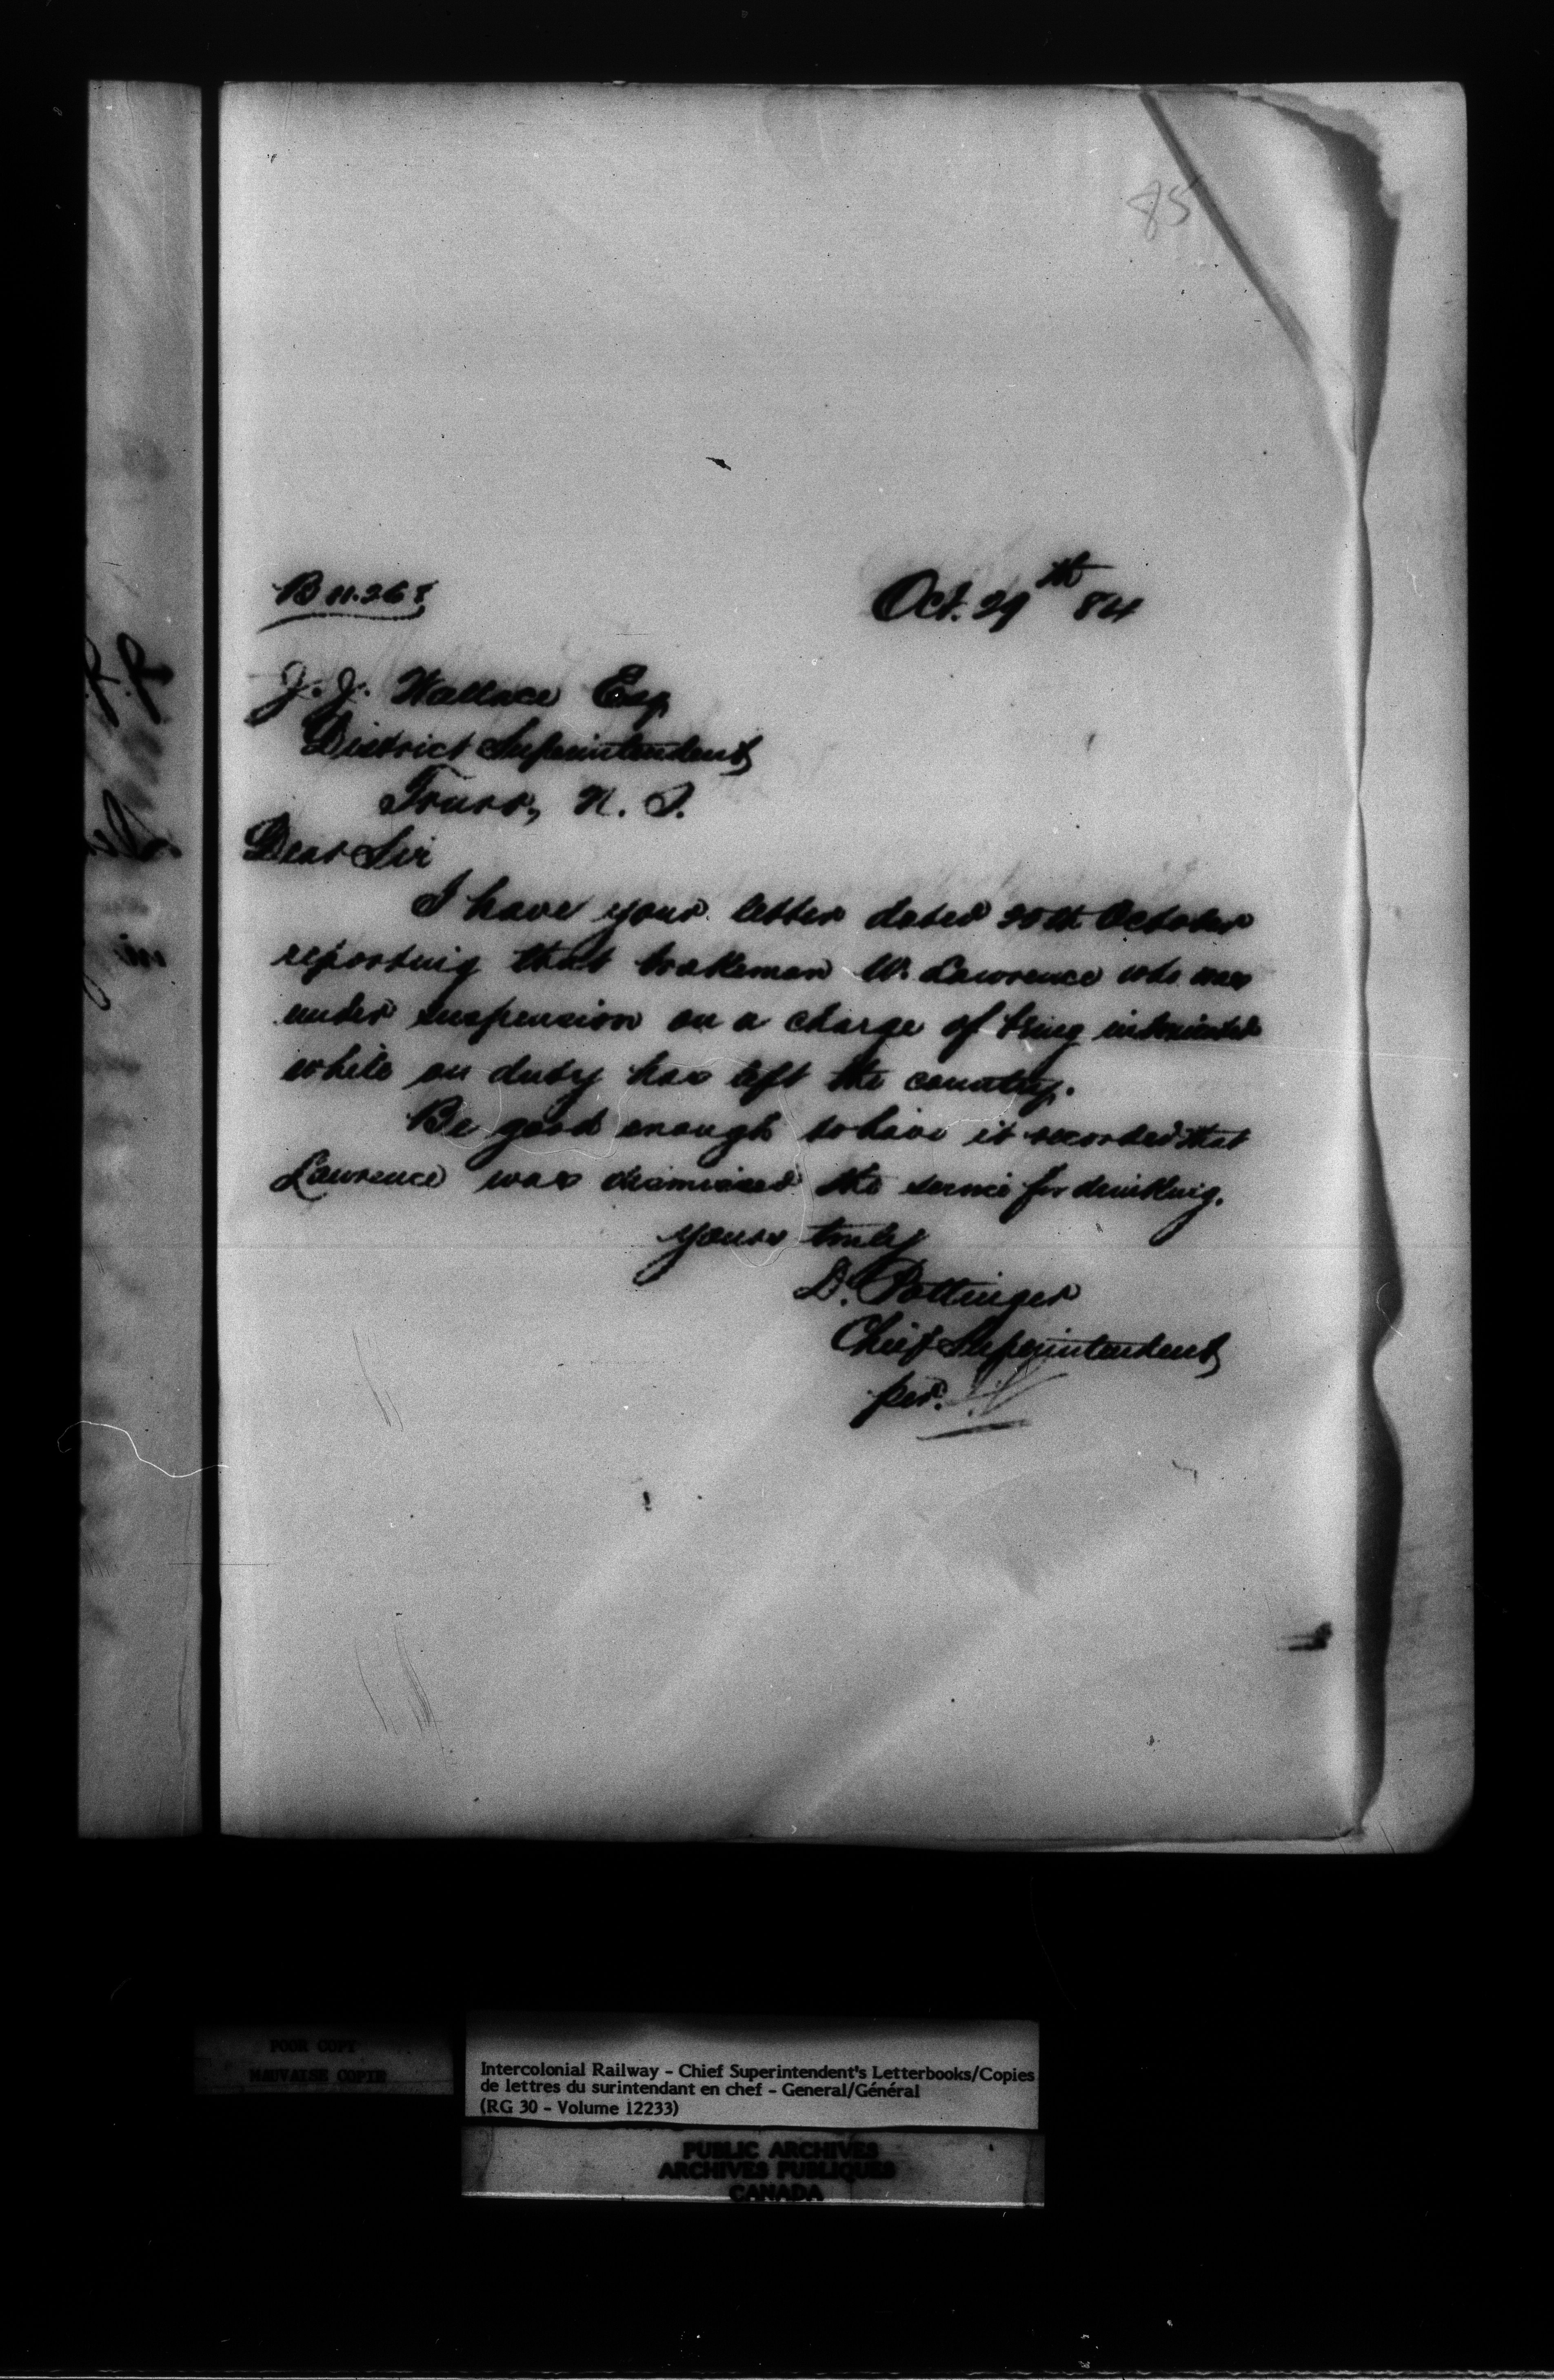 85
B 11.268
Oct. 29th 84
J. J. Wallace Esq
District Superintendent
Truro, N. S.
Dear Sir
I have your letter dated 20th October
reporting that brakeman W. Lawrence who was
under suspension on a charge of being intoxicated
while on duty has left the country.
Be good enough to have it recorded that
Lawrence was dismissed the service for drinking.
yours truly
D. Pottinger
Chief Superintendent
per.
POOR COPY
MAUVAISE COPIE
Intercolonial Railway - Chief Superintendent's Letterbooks/Copies
de lettres du surintendant en chef - General/Général
(RG 30 - Volume 12233)
PUBLIC ARCHIVES
ARCHIVES PUBLIQUES
CANADA